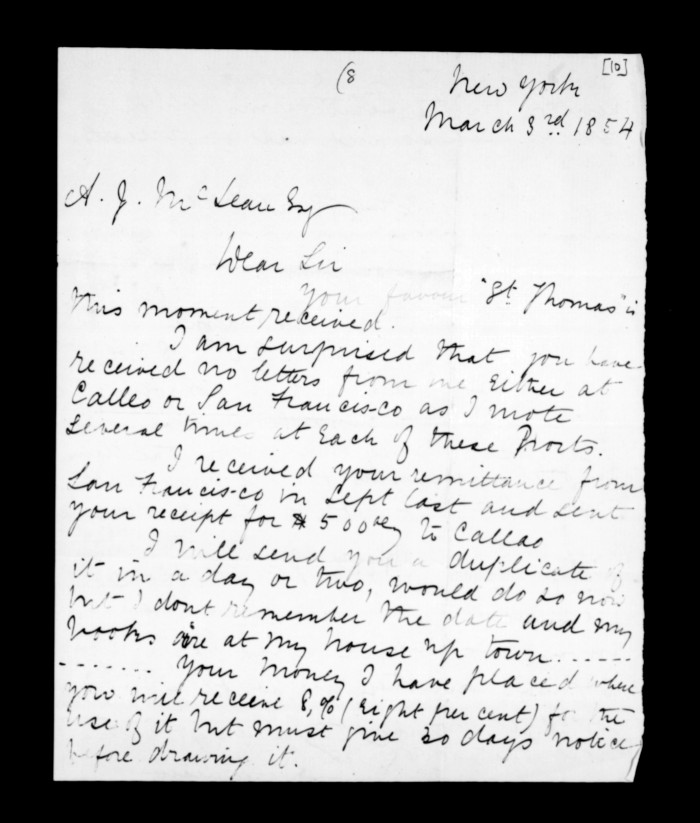 (8
[10]
New York
March 3rd 1854
A. J. McLean Esq
Dear Sir
Your favour "St. Thomas" is
this moment received.
I am surprised that you have
received no letters from me either at
Calleo or San Francisco as I wrote
several times at Each of these Ports.
I received your remittance from
San Francisco in Sept last and sent
your receipt for $500 to Callao
I will send you a duplicate of
it in a day or two, would do so now
but I dont remember the date and my
books are at my house up town ......
....... Your money I have placed where
you will receive 8% (Eight per cent) for the
use of it but must give 30 days notice
before drawing it.